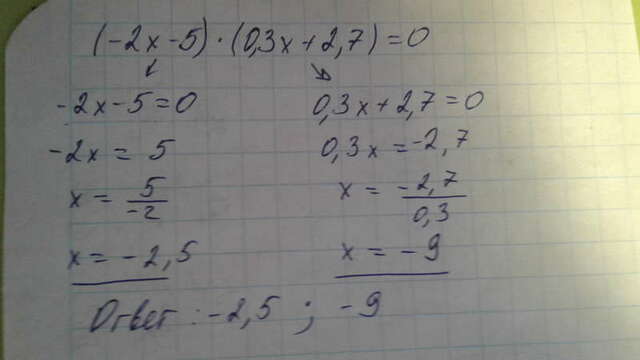 (-2x-5)·(0,3x+2,7)=0
-2x-5=0
-2x=5
x=5/-2
x=-2,5
0,3x+2,7=0
0,3x=-2,7
x=-2,7/0,3
x=-9
Ответ: -2,5; -9